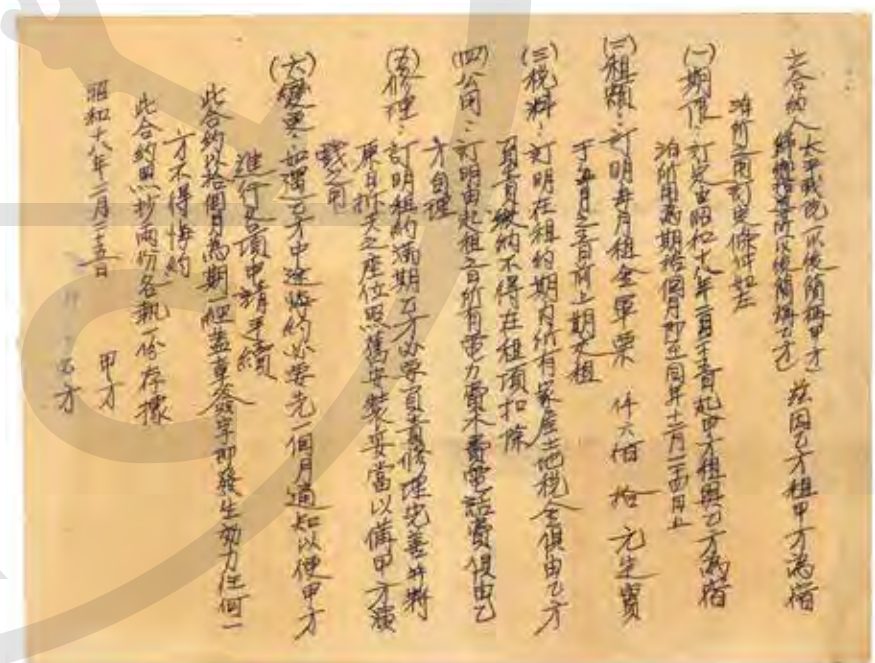 立合約人 太平戲院(以後簡稱甲方) 茲因乙方租甲方為宿
綿(以後簡稱乙方)
泊所之用訂定條件如左
(一)期限:訂定由昭和十八年二月二十五日起甲方租與乙方為宿
泊所用為期拾個月即至同年十二月二十四日止
(二)租額:訂明每月租金軍票 仟六佰 拾 元定實
于每月之首前上期交租
(三)稅料:訂明在租約期內所有家屋土地稅全俱由乙方
負責繳納不得在租項扣除
(四)公司:訂明由起租之日所有電力費水費電話費俱由乙
方自理
(五)修理:訂明租約滿期乙方必要負責修理完善并將
原日拆去之座位照舊安裝妥當以備甲方演
戲之用
(六)變更:如遇乙方中途悔約必要先一個月通知以便甲方
進行各項申請手續
此合約以拾個月為期一經蓋章簽字即發生効力任何一
方不得悔約
此合約照抄兩份各執一份存據
昭和十八年二月二十五日 甲方
乙方